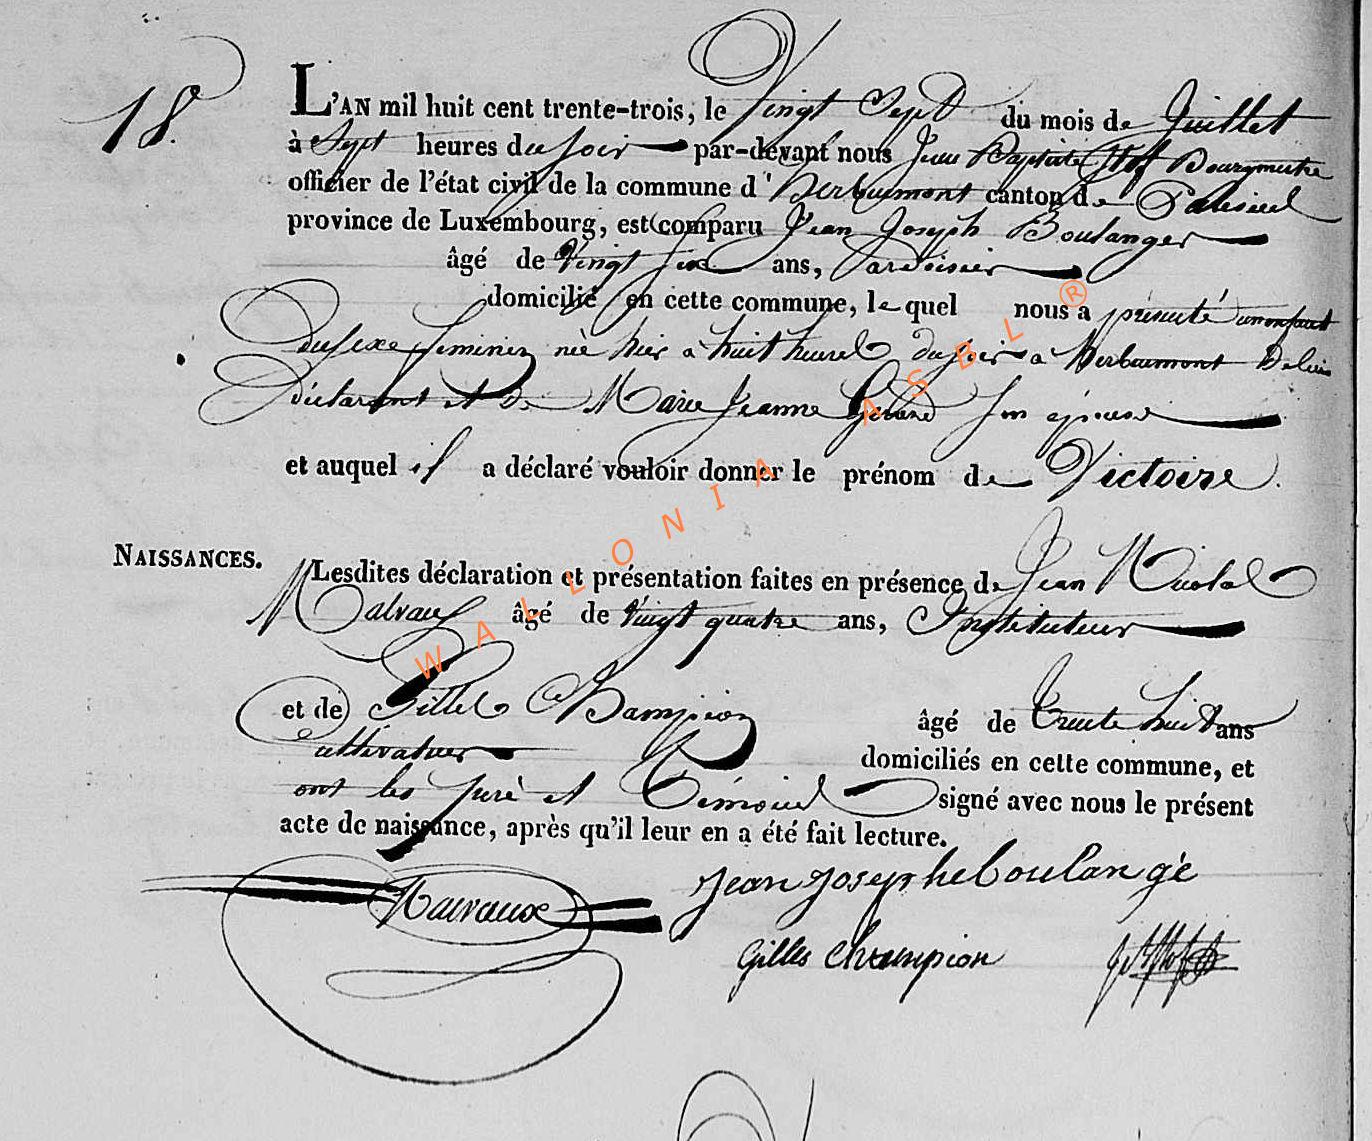 18.
L'AN mil huit cent trente-trois, le Vingt Sept du mois de Juillet
à Sept heures du soir par-devant nous Jean Baptiste Bourgmestre
officier de l'état civil de la commune d'herbeumont canton de Paliseul
province de Luxembourg, est comparu Jean Joseph Boulanger
âgé de Vingt six ans, ardoisier
domicilié en cette commune, lequel nous a présenté un enfant
du sexe feminin née hier a huit heures du soir a herbeumont De lui
déclarant et De Marie Jeanne Gérard son épouse
et auquel il a déclaré vouloir donner le prénom de Victoire.
NAISSANCES.
Lesdites déclaration et présentation faites en présence de Jean Nicolas
Malvaux âgé de Vingt quatre ans, Instituteur
et de Gilles Champion âgé de Trente huit ans
cultivateur domiciliés en cette commune, et
ont les père et Témoins signé avec nous le présent
acte de naissance, après qu'il leur en a été fait lecture.
Malvaux
Jean Josephe boulangé
Gilles Champion
WALLONIA ASBL ®